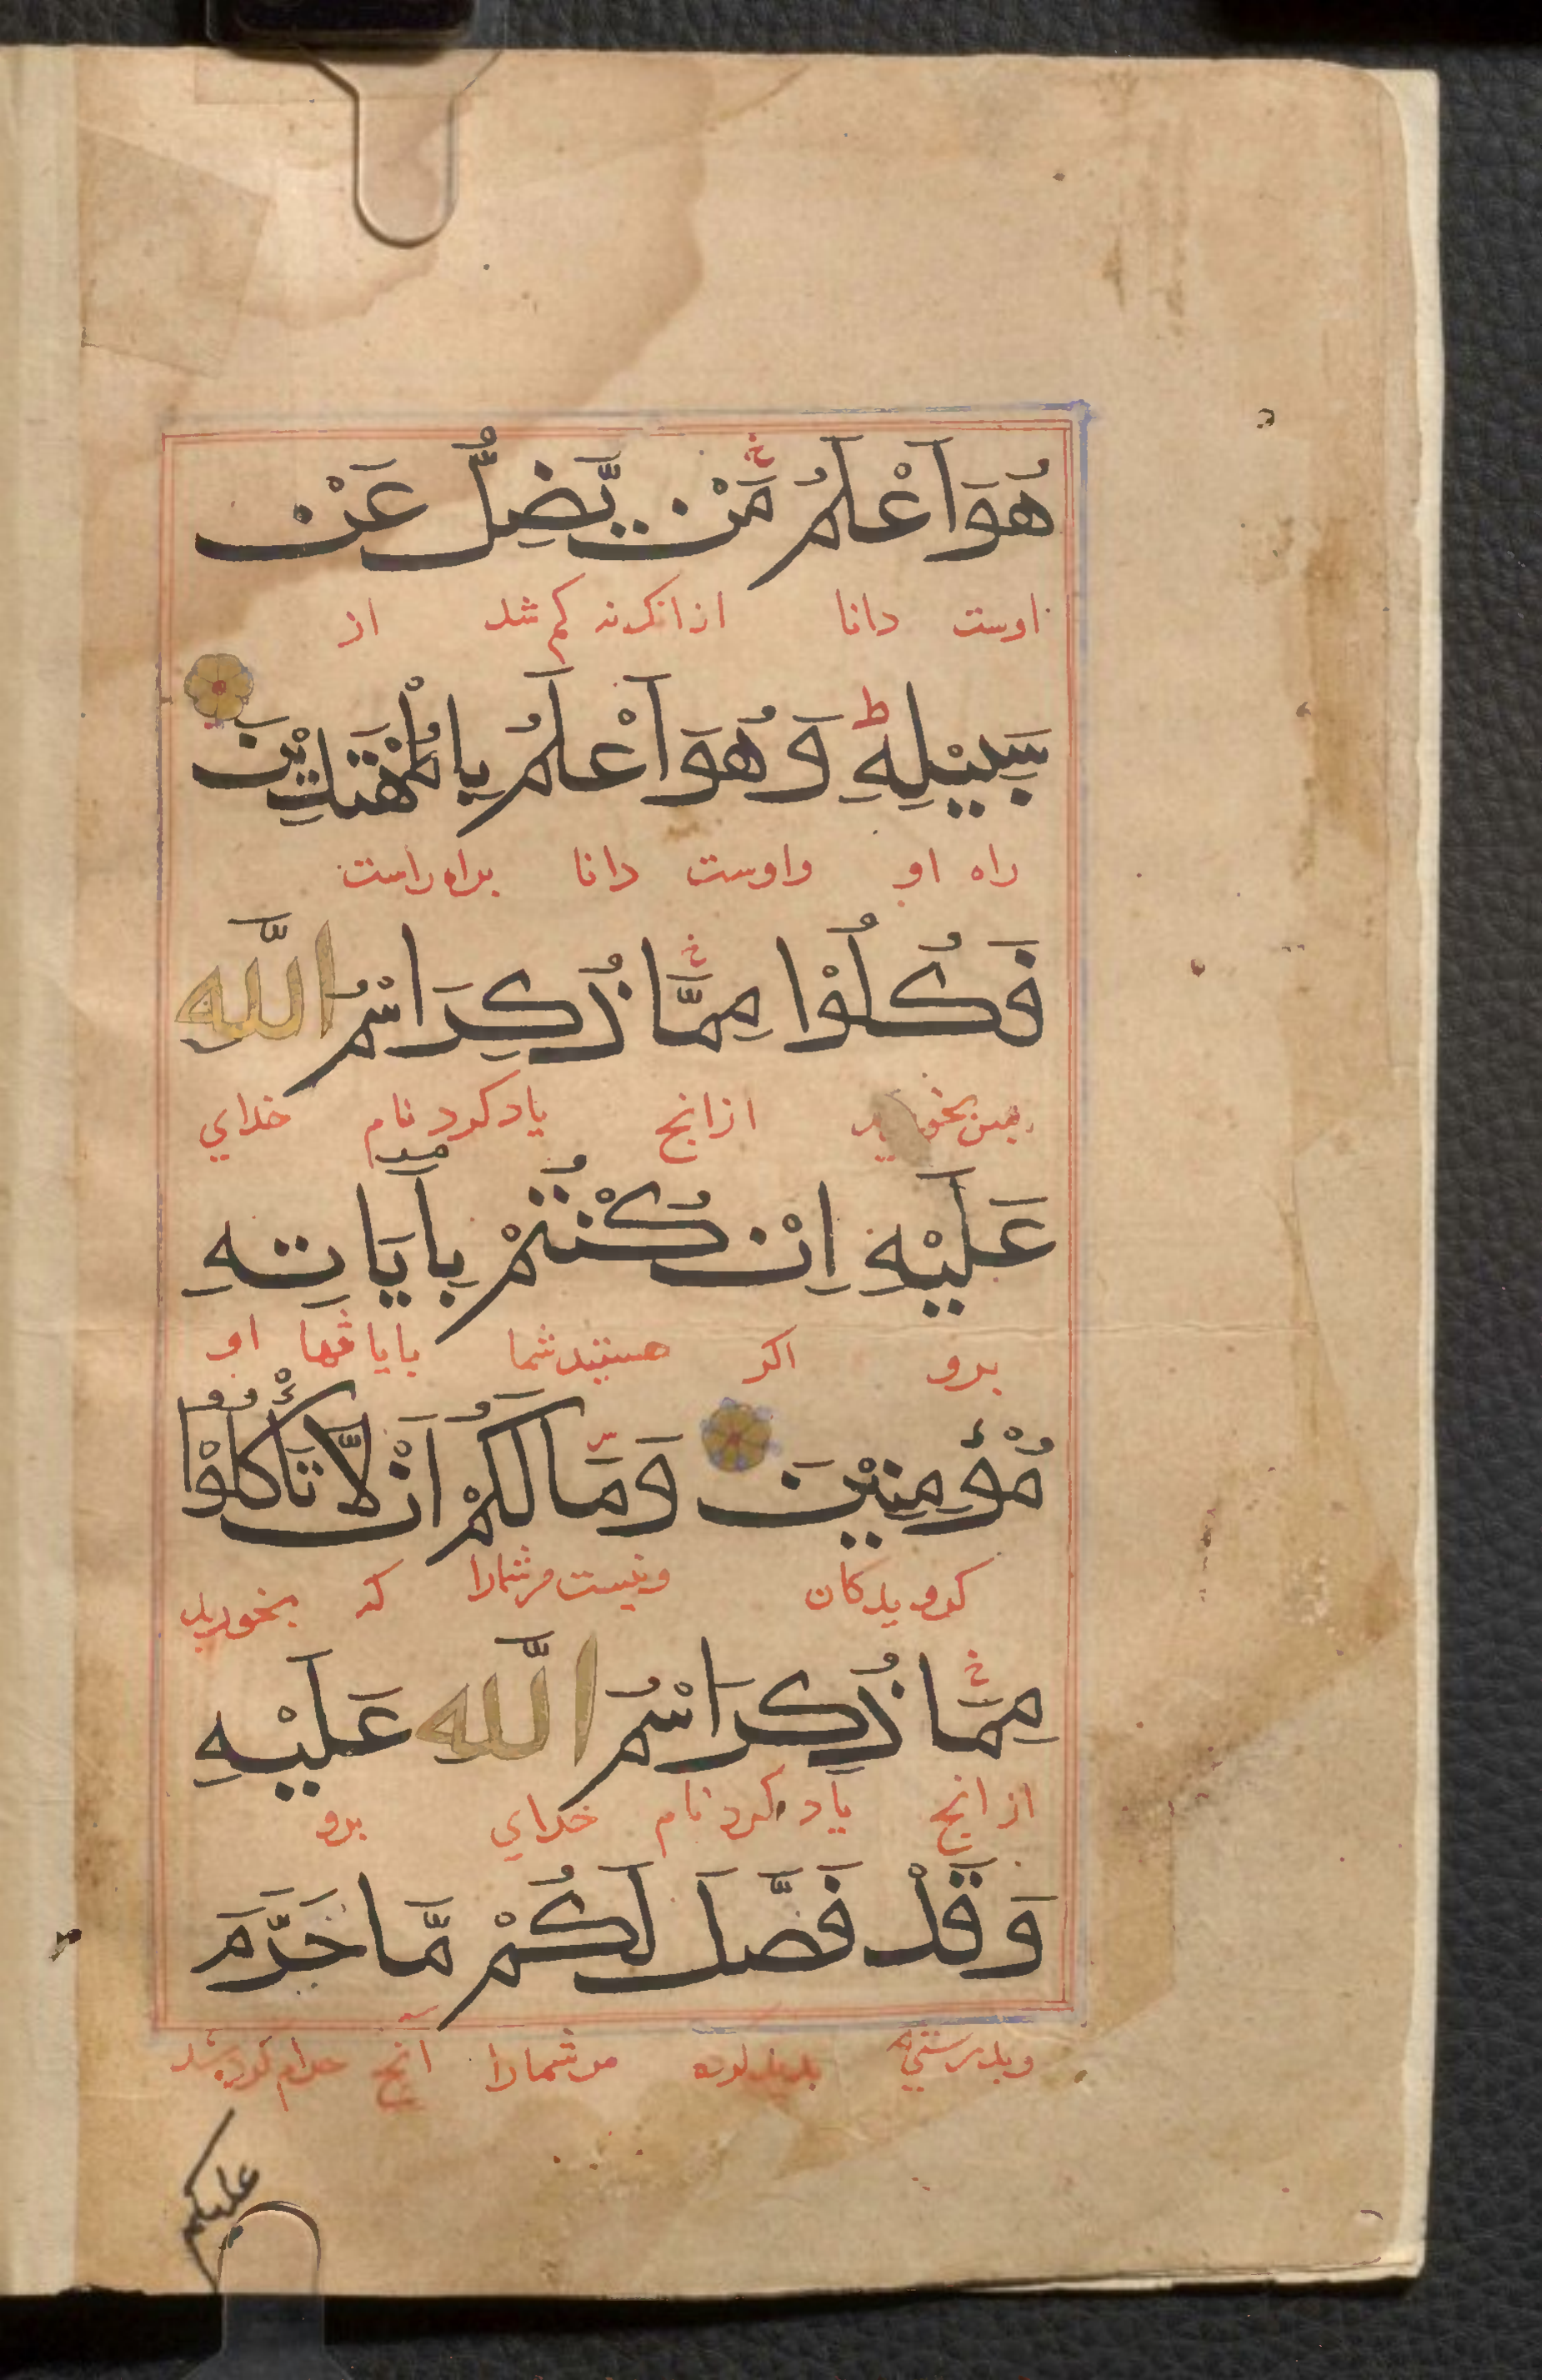 هُوَ اَعْلَمُ مَنْ يَّضِلُّ عَنْ
اوست دانا ازانکه کم شد از
سَبِيْلِهٖ ط وَهُوَ اَعْلَمُ بِالْمُهْتَدِيْنَ
راه او واوست دانا براه راست
فَكُلُوْا مِمَّا ذُكِرَ اسْمُ اللّٰهِ
ازانج یاد کرد نام خدای
عَلَيْهِ اِنْ كُنْتُمْ بِاٰيَاتِهٖ
برو اکر هستید شما بایاتها او
مُؤْمِنِيْنَ وَمَا لَكُمْ اَنْ لَّا تَأْكُلُوْا
کرویدکان ونیست مرشمارا که بخورید
مِمَّا ذُكِرَ اسْمُ اللّٰهِ عَلَيْهِ
ازانج یاد کرد نام خدای برو
وَقَدْ فَصَّلَ لَكُمْ مَّا حَرَّمَ
وبدرستی مرشمارا آنج حرام کرده شد
علیکم